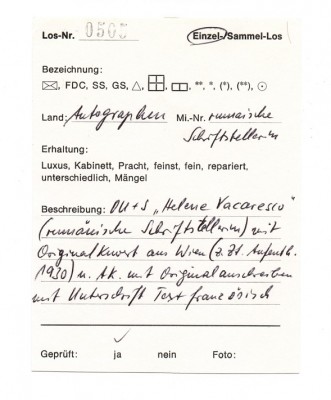 Los-Nr. 0505 Einzel-/Sammel-Los
Bezeichnung:
FDC, SS, GS, **, *, (*), (**),
Land: Autographen Mi.-Nr. rumänische
Schriftstellerin
Erhaltung:
Luxus, Kabinett, Pracht, feinst, fein, repariert,
unterschiedlich, Mängel
Beschreibung: OU+S „Helene Vacaresco"
(rumänische Schriftstellerin) mit
Originalkuvert aus Wien (z. Zt. Aufenth.
1930) u. AK. mit Originalanschreiben
mit Unterschrift Text französisch
Geprüft: ja nein Foto: